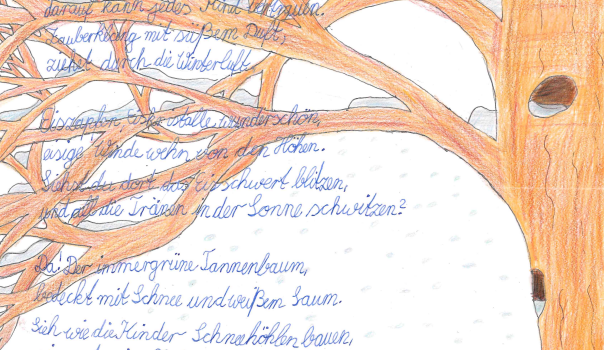 darauf kann jedes Kind vertrauen.
Zauberklang mit süßem Duft,
ziehet durch die Winterluft.
Eiszapfen, Eiskristalle wunderschön,
eisige Winde wehn von den Höhen.
Siehst du dort das Eisschwert blitzen,
und all die Tränen in der Sonne schwitzen?
Da! Der immergrüne Tannenbaum,
bedeckt mit Schnee und weißem Saum.
Sieh wie die Kinder Schneehöhlen bauen,